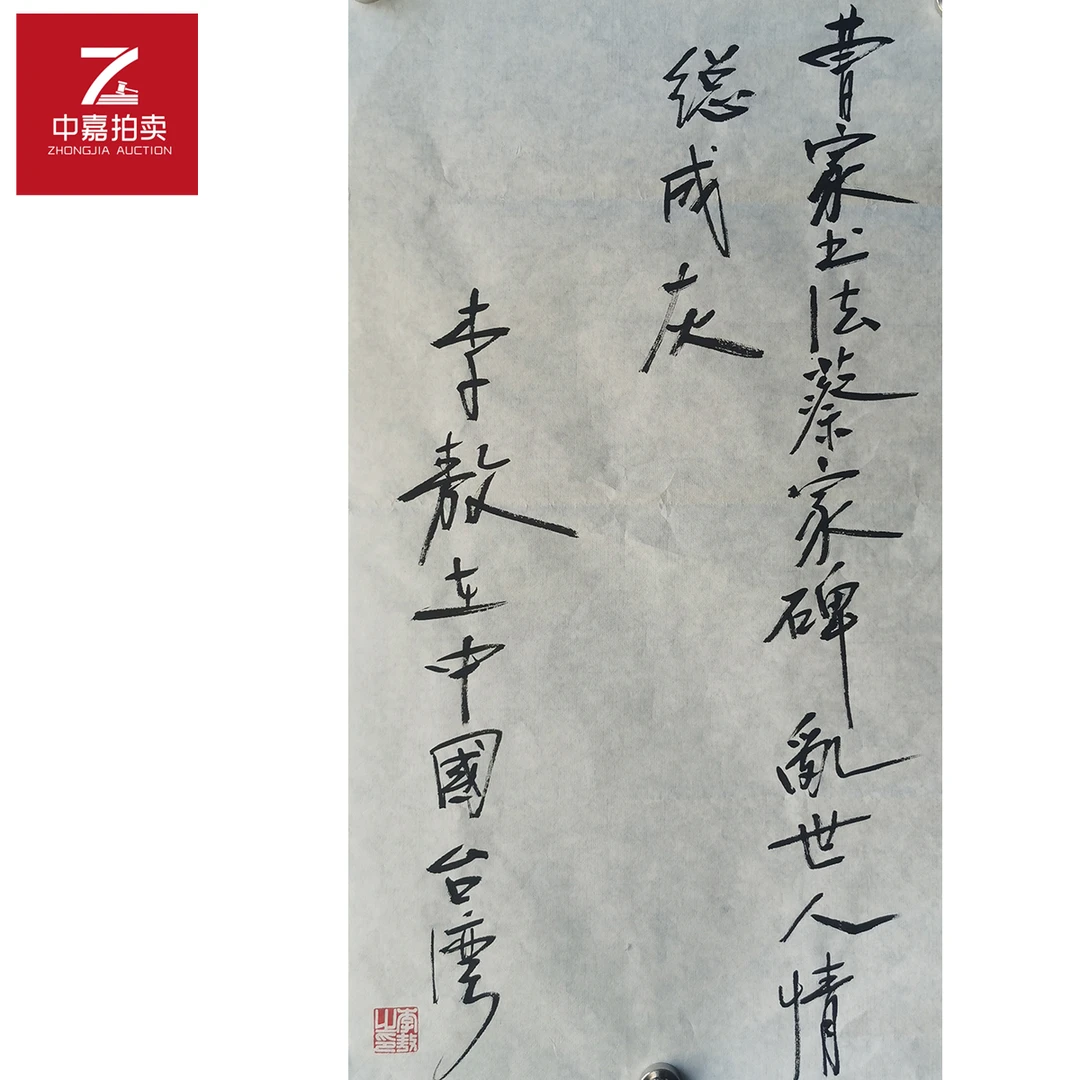 中嘉拍卖
ZHONGJIA AUCTION
曹家书法蔡家碑亂世人情
总成灰
李敖在中國台湾
李敖之印